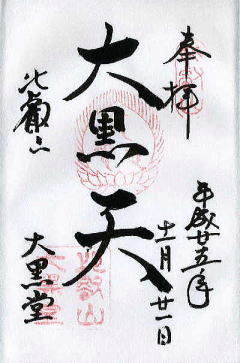 奉拝
平成廿五年
十一月廿一日
大黒天
比叡山
大黒堂